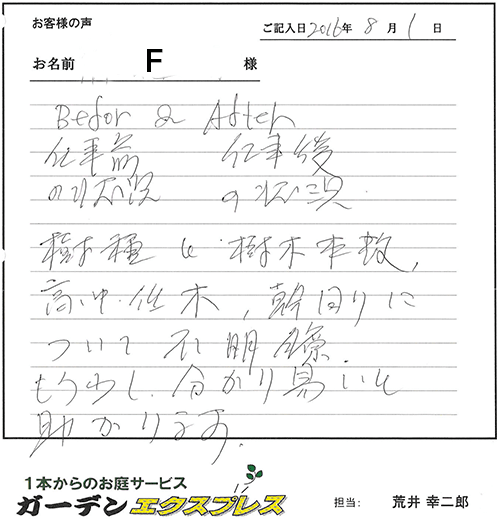 お客様の声
ご記入日 2016年 8月 1日
お名前 F 様
Befor & After
仕事前 仕事後
の状況 の状況.
樹種と樹木本数,
高・中・低木, 幹回りに
ついて不明瞭.
もう少し分かり易いと
助かります.
1本からのお庭サービス
ガーデンエクスプレス
担当: 荒井 幸二郎